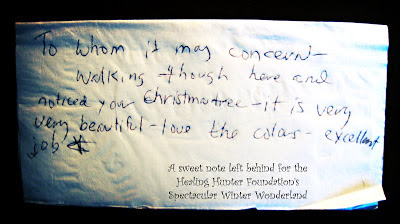 To whom it may concern-
Walking -though here and
noticed your Christmas tree - it is very
very beautiful - love the colors - excellent
job
A sweet note left behind for the
Healing Hunter Foundation's
Spectacular Winter Wonderland